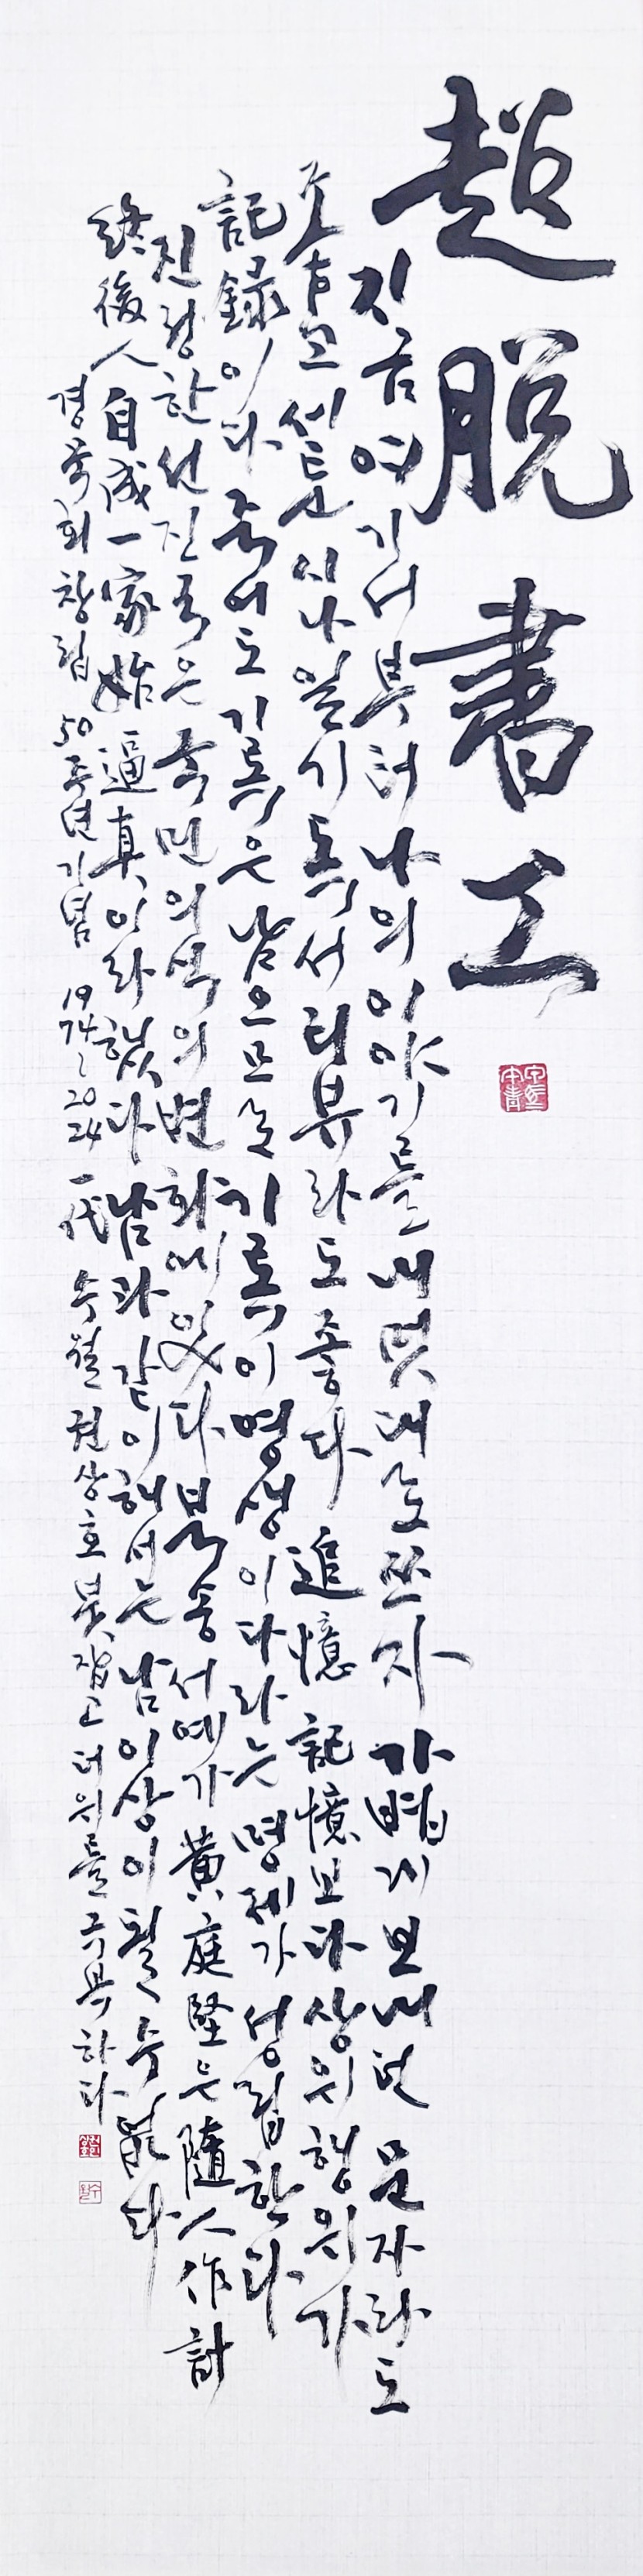 超脫書工
지금 여기서부터 나의 이야기를 내 멋대로 쓰자 가볍게 보내던 문자라도
좋고 시나 일기 독서 리뷰라도 좋다 追憶 記憶보다 상위 행위가
記錄이다 죽어도 기록은 남으므로 기록이 영생이다라는 명제가 성립한다
진정한 선진국은 국민의식의 변화에 있다 붓송 서예가 黃庭堅은 隨人作計
終後人 自成一家始逼眞이라 했다 남과 같이 해서는 남 이상이 될 수 없다
경묵회 창립 50주년 기념 1974~2024 一代 수월 권상호 붓 잡고 더위를 극복하다